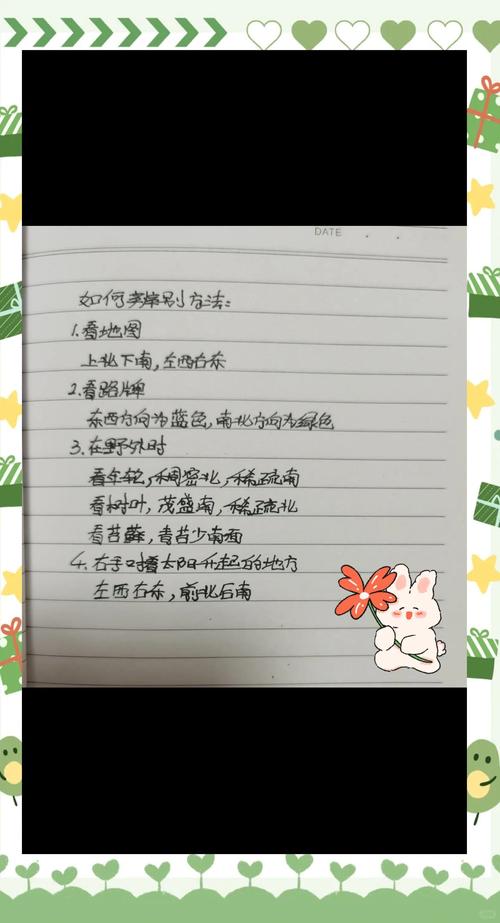 DATE
如何辨别方法:
1.看地图
上北下南,左西右东
2.看路牌
东西方向为蓝色,南北方向为绿色
3.在野外时
看年轮,稠密北,稀疏南
看树叶,茂盛南,稀疏北
看苔藓,青苔少南面
4.右手对着太阳升起的地方
左西右东,前北后南